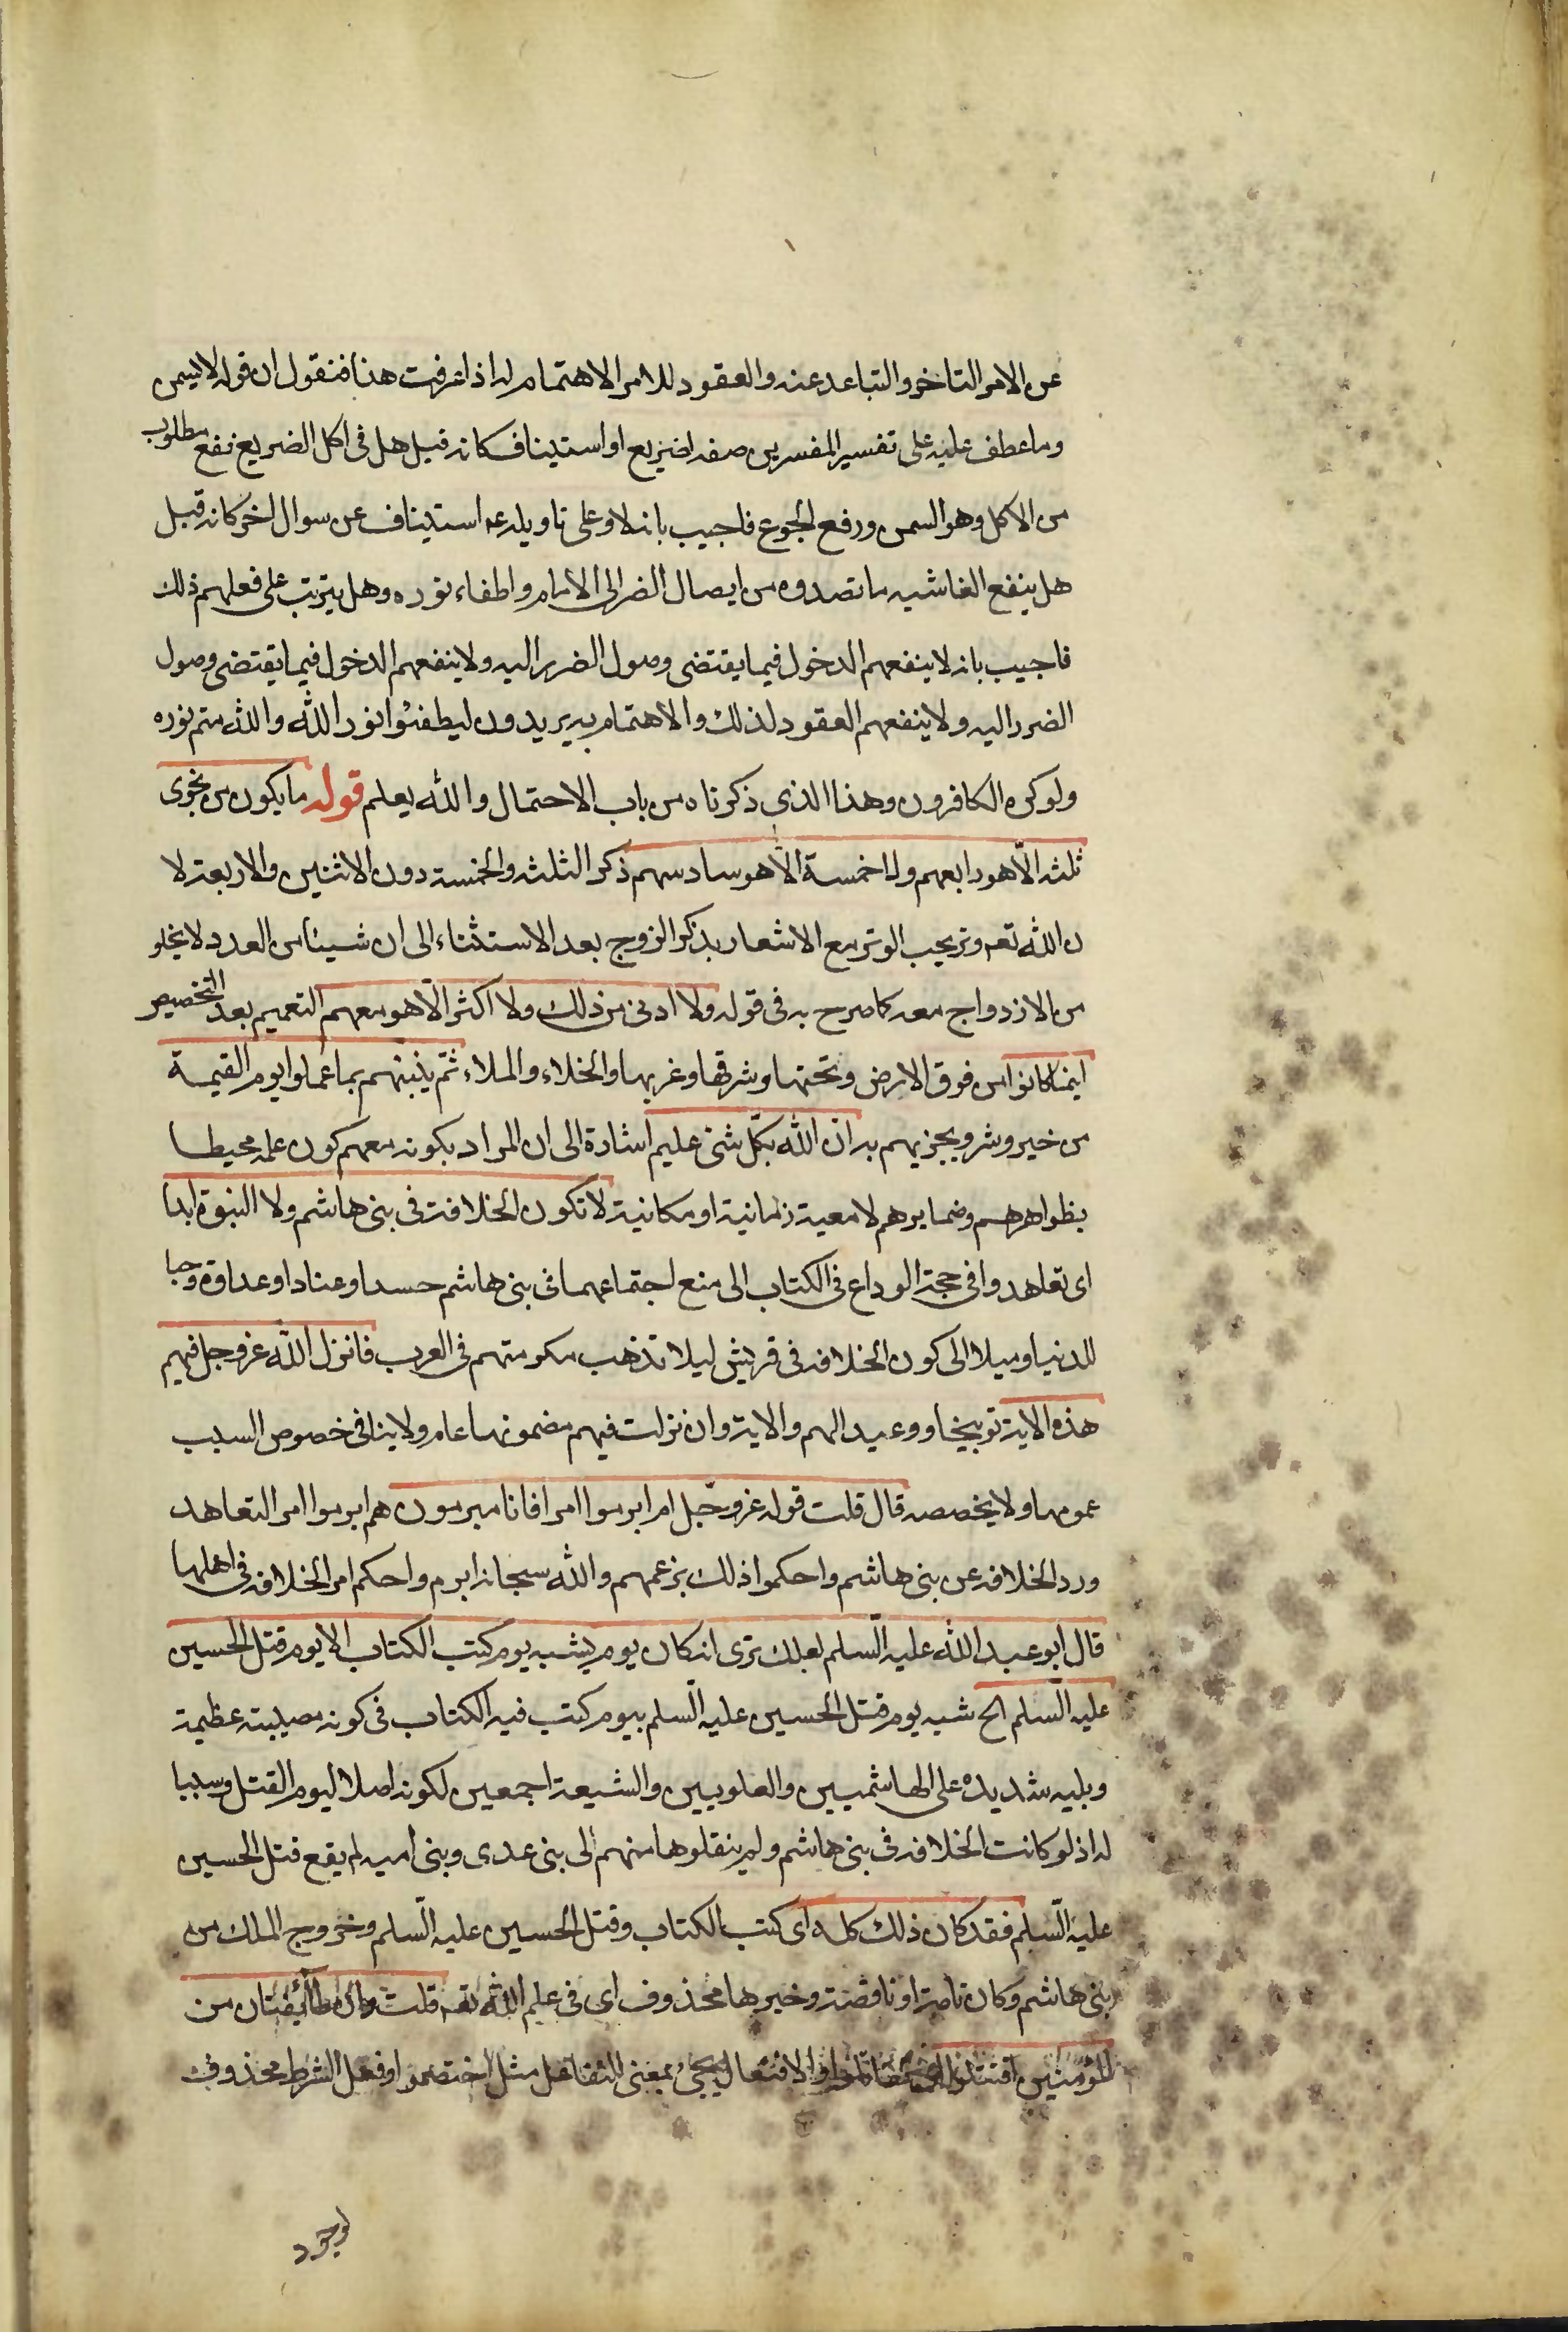 عن الامر التاخر والتباعد عنه والعقود للامر الاهتمام له اذا عرفت هذا فنقول ان قوله لا يسمن
وما عطف عليه على تفسير المفسرين صفه لضريع او استيناف كانه قيل هل فى اكل الضريع نفع مطلوب
من الاكل وهو السمن ورفع الجوع فاجيب بانه لا وعلى تاويله عم استيناف عن سوال اخر كانه قيل
هل ينفع الغاشيه ما تصدوه من ايصال الضر الى الامام واطفاء نوره وهل يترتب على فعلهم ذلك
فاجيب بانه لا ينفعهم الدخول فيما يقتضى وصول الضرر اليه ولا ينفعهم الدخول فيما يقتضى وصول
الضرر اليه ولا ينفعهم العقود لذلك والاهتمام به يريدون ليطفئوا نور الله والله متم نوره
ولو كره الكافرون وهذا الذى ذكرناه من باب الاحتمال والله يعلم قوله ما يكون من نجوى
ثلثه الّا هو رابعهم ولا خمسة الّا هو سادسهم ذكر الثلثه والخمسة دون الاثنين والاربعة لا
ن الله تعم وتر يحب الوتر مع الاشعار بذكر الزوج بعد الاستثناء الى ان شيئا من العدد لا يخلو
من الازدواج معه كما صرح به فى قوله ولا ادنى من ذلك ولا اكثر الّا هو معهم التعميم بعد التخصيص
اينما كانوا من فوق الارض وتحتها وشرقها وغربها والخلاء والملاء ثمّ ينبئهم بما عملوا يوم القيمة
من خير وشر ويجزيهم به انّ الله بكّل شئ عليم اشارة الى ان المراد بكونه معهم كون علمه محيطا
بظواهرهم وضمايرهم لا معية زمانية او مكانية لا تكون الخلافة فى بنى هاشم ولا النبوة ابدا
اى تعاهدوا فى حجة الوداع فى الكتاب الى منع اجتماعهما فى بنى هاشم حسدا وعنادا وعداوة وحبا
للدنيا وميلا الى كون الخلافه فى قريش ليلا تذهب مكرمتهم فى العرب فانزل الله عز وجل فيهم
هذه الاية توبيخا ووعيدا لهم والاية وان نزلت فيهم مضمونها عام ولا ينافى خصوص السبب
عمومها ولا يخصصه قال قلت قوله عز وجّل ام ابرموا امرا فانا مبرمون هم ابرموا امر التعاهد
ورد الخلافه عن بنى هاشم واحكموا ذلك بزعمهم والله سبحانه ابرم واحكم امر الخلافه فى اهلها
قال ابو عبد الله عليه السّلم لعلك ترى انه كان يوم يشبه يوم كتب الكتاب الا يوم قتل الحسين
عليه السّلم الخ شبه يوم قتل الحسين عليه السّلم بيوم كتب فيه الكتاب فى كونه مصيبة عظيمة
وبليه شديده على الهاشميين والعلويين والشيعة اجمعين لكونه اصلا ليوم القتل وسببا
له اذ لو كانت الخلافه فى بنى هاشم ولم ينقلوها منهم الى بنى عدى وبنى اميه لم يقع قتل الحسين
عليه السّلم فقد كان ذلك كله اى كتب الكتاب وقتل الحسين عليه السّلم وخروج الملك من
بنى هاشم وكان تامة او ناقصة وخبرها محذوف اى فى علم الله تعم قلت وان طآئفتان من
المؤمنين اقتتلوا والافتعال يجئ بمعنى التفاعل مثل اختصموا وفعل الشرط محذوف
لوجود